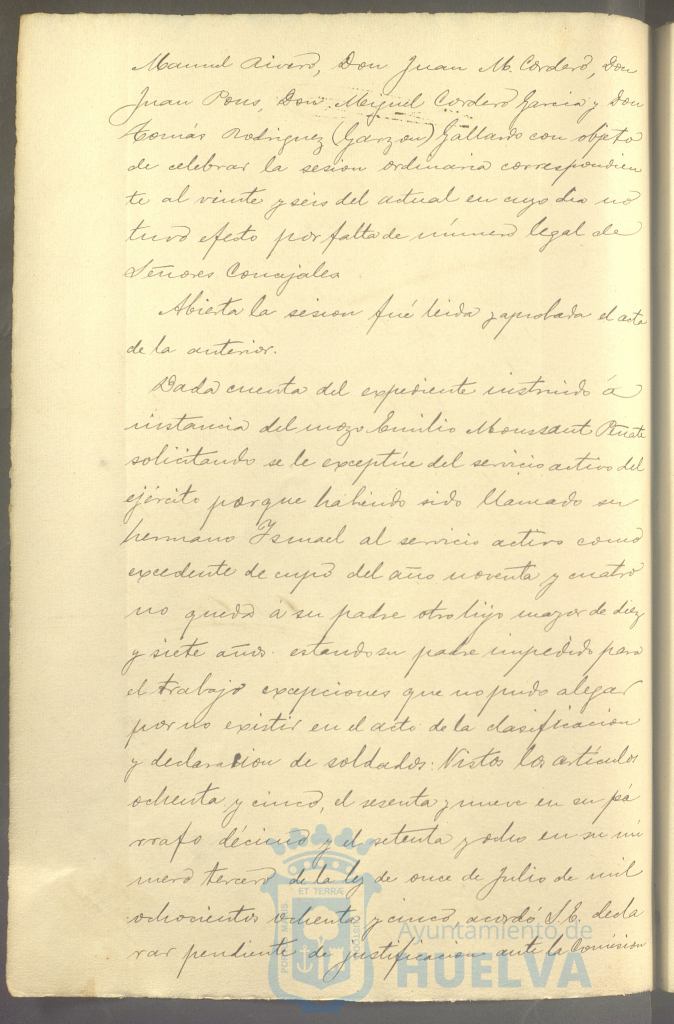 Manuel Rivero, Don Juan M. Cordero, Don
Juan Pons, Don Miguel Cordero Garcia y Don
Tomás Rodriguez (Garzon) Gallardo con objeto
de celebrar la sesion ordinaria correspondien
te al veinte y seis del actual en cuyo dia no
tuvo efecto por falta de número legal de
Señores Concejales
Abierta la sesion fué leida y aprobada el acta
de la anterior.
Dada cuenta del expediente instruido á
instancia del mozo Emilio Moussaut Peñate
solicitando se le exceptúe del servicio activo del
ejército porque habiendo sido llamado su
hermano Ismael al servicio activo como
excedente de cupo del año noventa y cuatro
no queda á su padre otro hijo mayor de diez
y siete años estando su padre impedido para
el trabajo excepciones que no pudo alegar
por no existir en el acto de la clasificacion
y declaracion de soldados: Vistos los artículos
ochenta y cinco, el sesenta y nueve en su pá
rrafo décimo y el setenta y ocho en su nú
mero tercero de la ley de once de Julio de mil
ochocientos ochenta y cinco, acordó S.E. decla
rar pendiente de justificacion ante la Comision
ET TERRÆ
Ayuntamiento de
HUELVA